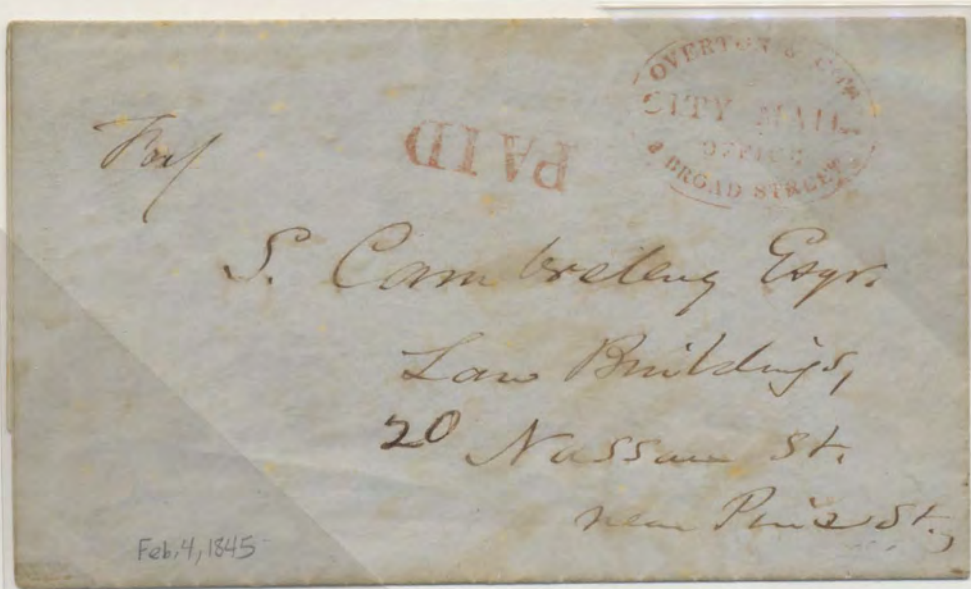 OVERTON & CO'S
CITY MAIL
OFFICE
BROAD STREET
PAID
S. Cambreleng Esqr.
Law Buildings,
20 Nassau St.
near Pine St,
Feb. 4, 1845